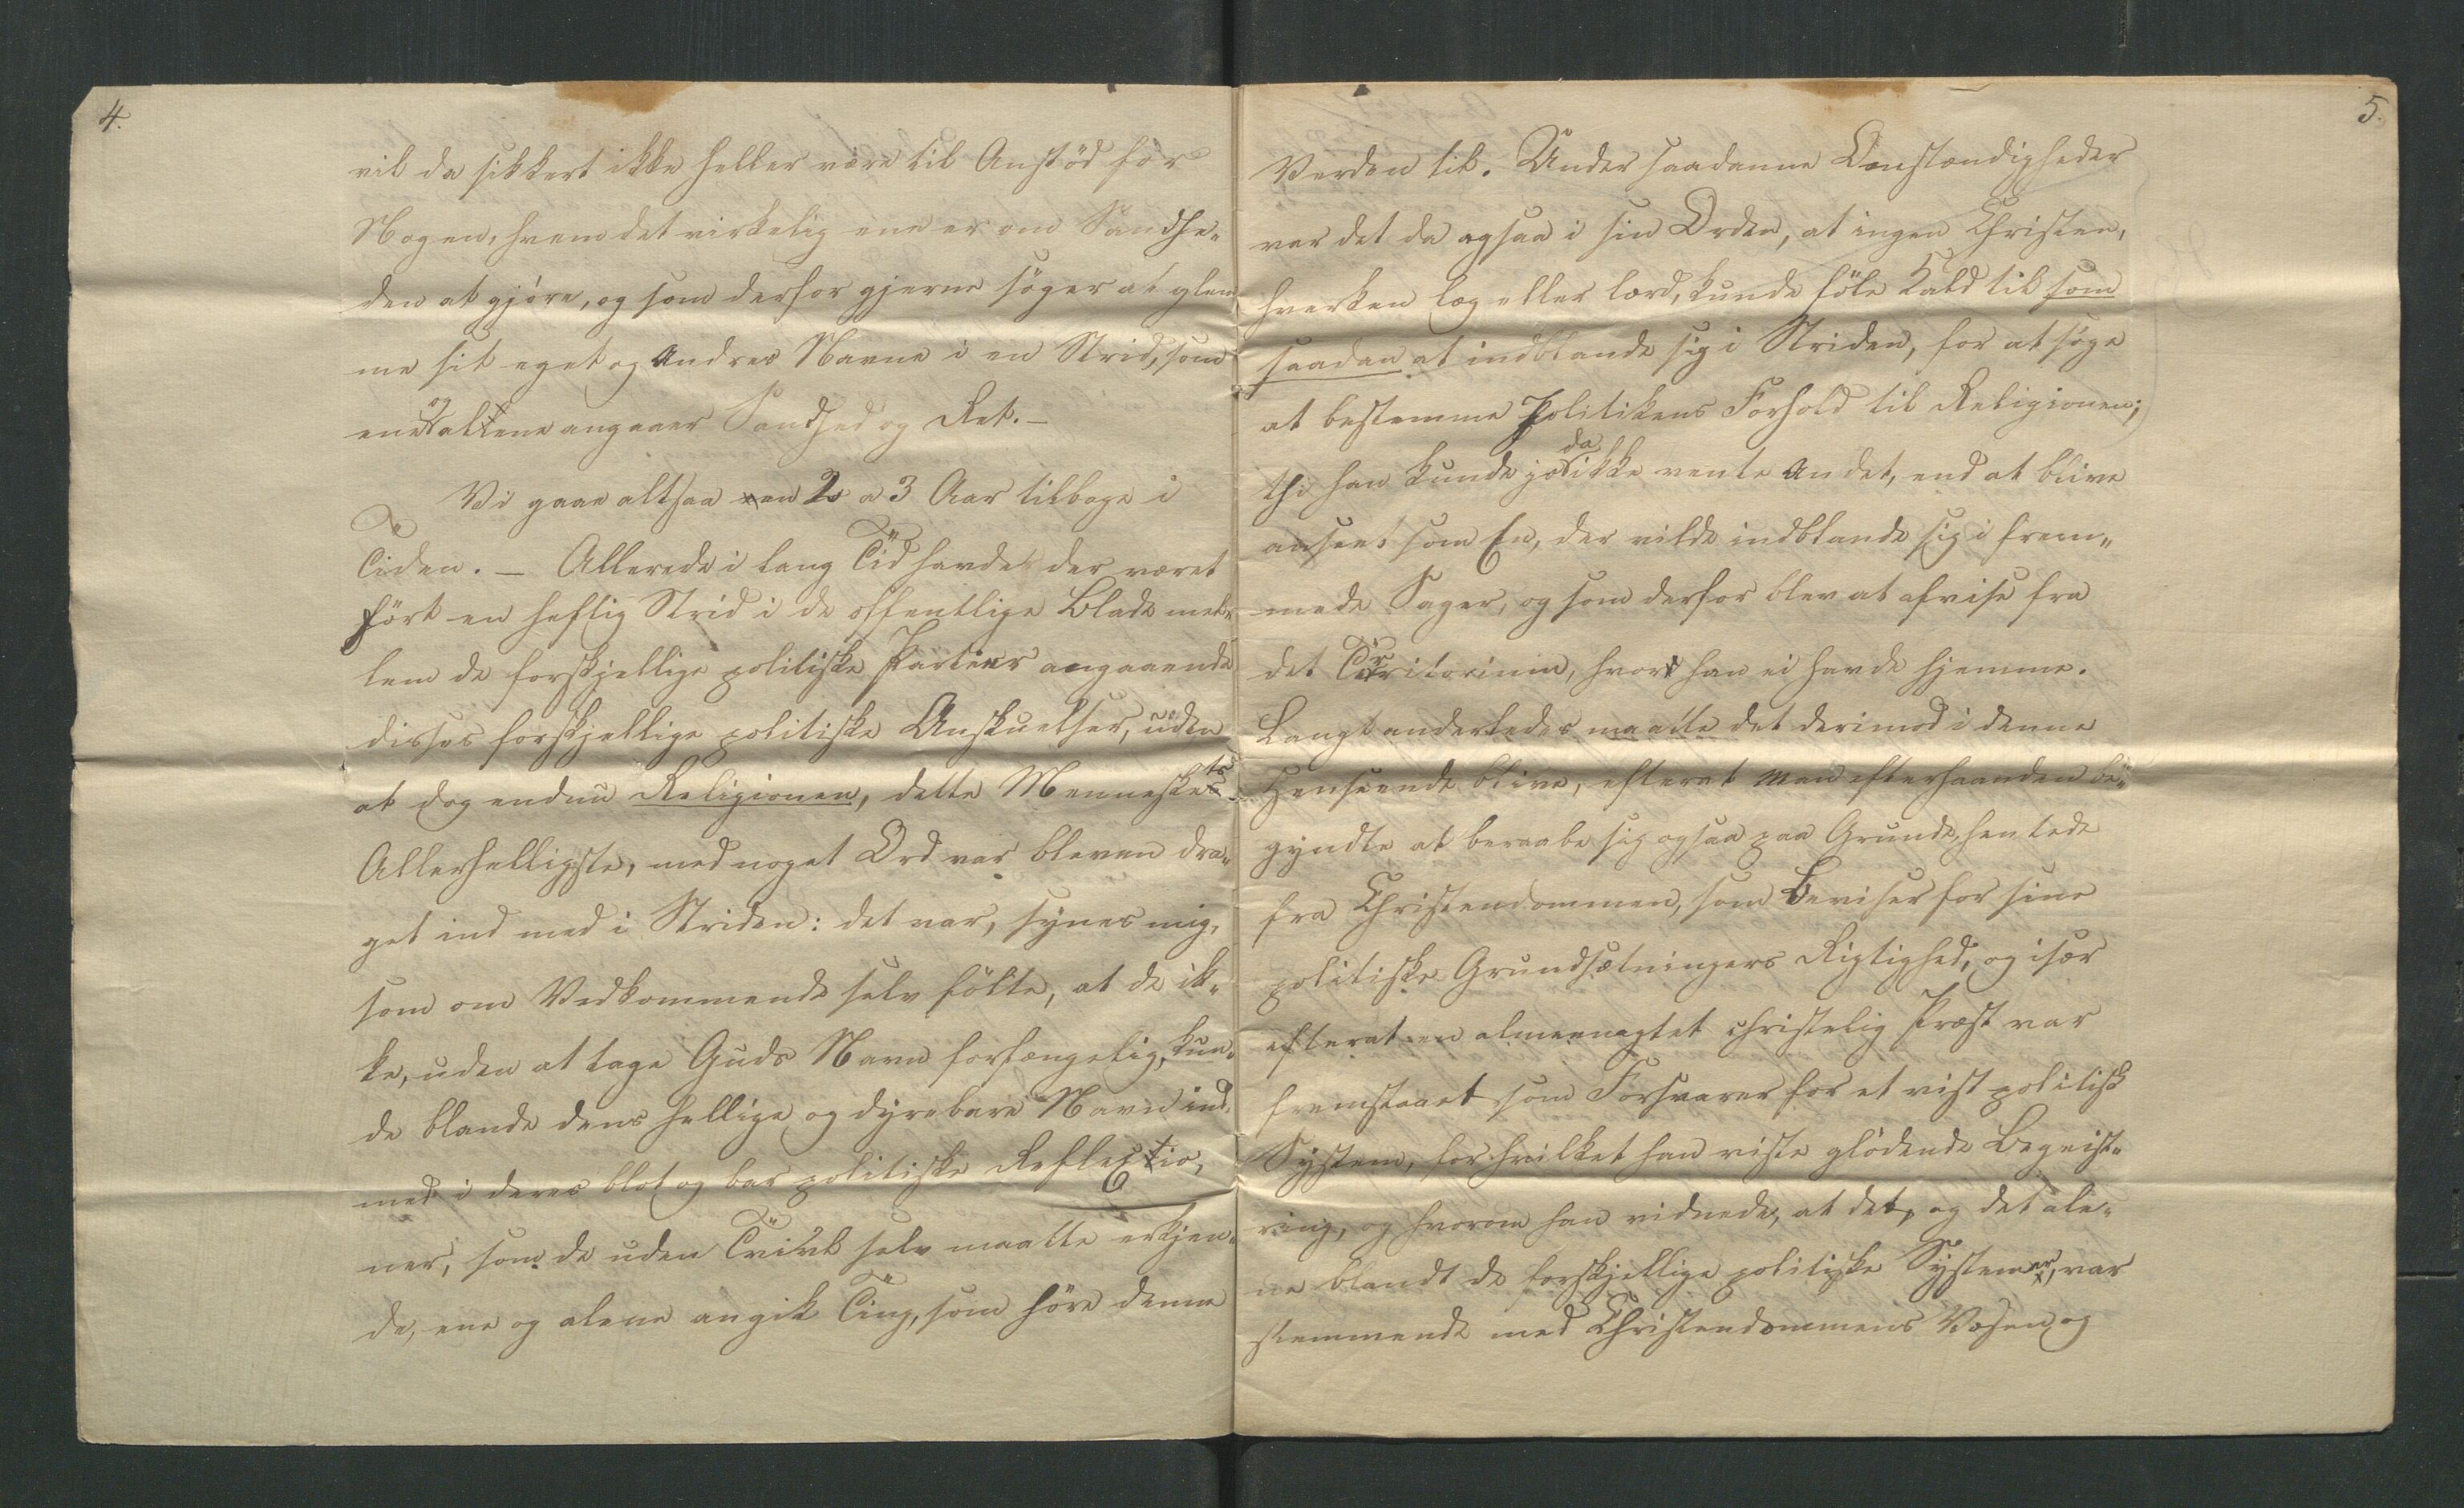 4.
vil da sikkert ikke heller være til Anstød for
Nogen, hvem det virkelig ene er om Sandhe-
den at gjøre, og som derfor gjerne søger at glem
me sit eget og Andres Navne i en Strid, som
ene og allene angaaer Sandhed og Ret. —
Vi gaae altsaa en 2 a 3 Aar tilbage i
Tiden. — Allerede i lang Tid havde der været
ført en heftig Strid i de offentlige Blade mel-
lem de forskjellige politiske Partier angaaende
disses forskjellige politiske Anskuelser, uden
at dog endnu Religionen, dette Menneskets
Allerhelligste, med noget Ord var bleven dra-
get ind med i Striden: det var, synes mig,
som om Vedkommende selv følte, at de ik-
ke, uden at tage Guds Navn forfængelig, kun-
de blande dens hellige og dyrebare Navn ind
med i deres blot og bar politiske Reflectio-
ner, som de uden Tvivl selv maatte erkjen-
de, ene og alene angik Ting, som høre denne
5.
Verden til. Under saadanne Omstændigheder
var det da ogsaa i sin Orden, at ingen Christen,
hverken læg eller lærd, kunde føle Kald til som
saadan at indblande sig i Striden, for at søge
at bestemme Politikens Forhold til Religionen;
thi han kunde jo da ikke vente Andet, end at blive
anseet som En, der vilde indblande sig i frem-
mede Sager, og som derfor blev at afvise fra
det Territorium, hvor han ei havde hjemme.
Langt anderledes maatte det derimod i denne
Henseende blive, efterat man efterhaanden be-
gyndte at beraabe sig ogsaa paa Grunde, hentede
fra Christendommen, som Beviser for sine
politiske Grundsætningers Rigtighed, og især
efterat en almeenagtet christelig Præst var
fremstaaet som Forsvarer for et vist politisk
System, for hvilket han viste glødende Begeist-
ring, og hvorom han vidnede, at det, og det ale-
ne blandt de forskjellige politiske Systemer, var
stemmende med Christendommens Væsen og